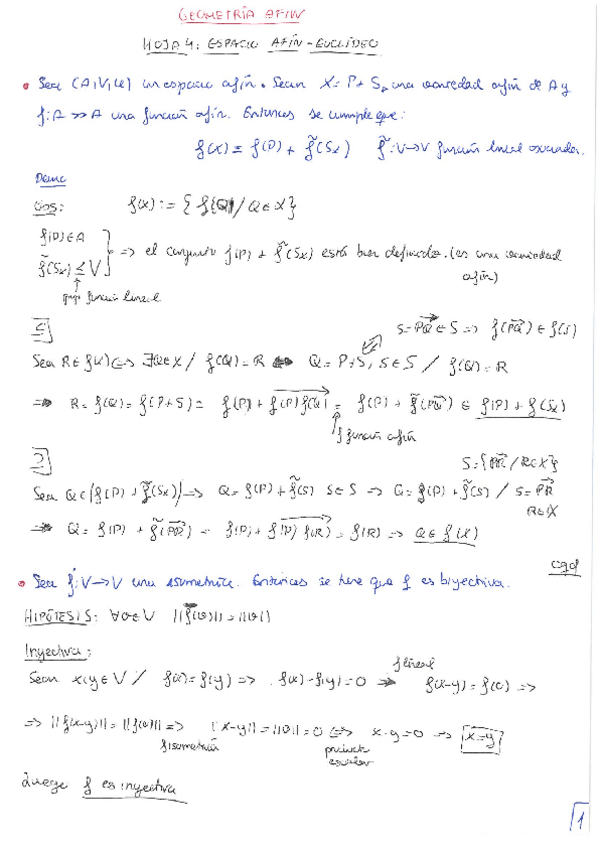 GEOMETRÍA AFÍN
HOJA 4: ESPACIO AFÍN-EUCLÍDEO
• Sea (A,V,φ) un espacio afín. Sean X = P + Sx una variedad afín de A y
f: A → A una función afín. Entonces se cumple que:
f(X) = f(P) + f̃(Sx) f̃: V→V función lineal asociada.
Demo
Obs: f(X) := { f(Q) / Q ∈ X }
f(P) ∈ A
f̃(Sx) ≤ V
⇒ el conjunto f(P) + f̃(Sx) está bien definido. (es una variedad
afín)
función lineal
⊆ S = PQ→ ∈ S ⇒ f(PQ→) ∈ f(S)
Sea R ∈ f(X) ⇔ ∃Q ∈ X / f(Q) = R ⇔ Q = P+S, S ∈ S / f(Q) = R
⇒ R = f(Q) = f(P+S) = f(P) + f(P)f(Q)→ = f(P) + f̃(PQ→) ∈ f(P) + f̃(Sx)
f función afín
⊇ S = {PR→ / R ∈ X}
Sea Q ∈ (f(P) + f̃(Sx)) ⇒ Q = f(P) + f̃(S) S ∈ S ⇒ Q = f(P) + f̃(S) / S = PR→
R ∈ X
⇒ Q = f(P) + f̃(PR→) = f(P) + f(P)f(R)→ = f(R) ⇒ Q ∈ f(X)
cqd
• Sea f: V→V una isometría. Entonces se tiene que f es biyectiva.
HIPÓTESIS: ∀v ∈ V ||f(v)|| = ||v||
Inyectiva:
Sean x,y ∈ V / f(x) = f(y) ⇒ f(x) - f(y) = 0 ⇒ f(x-y) = f(0) ⇒
f lineal
⇒ ||f(x-y)|| = ||f(0)|| ⇒ ||x-y|| = ||0|| = 0 ⇔ x-y = 0 ⇒ x=y
f isometría producto
escalar
Luego f es inyectiva
1